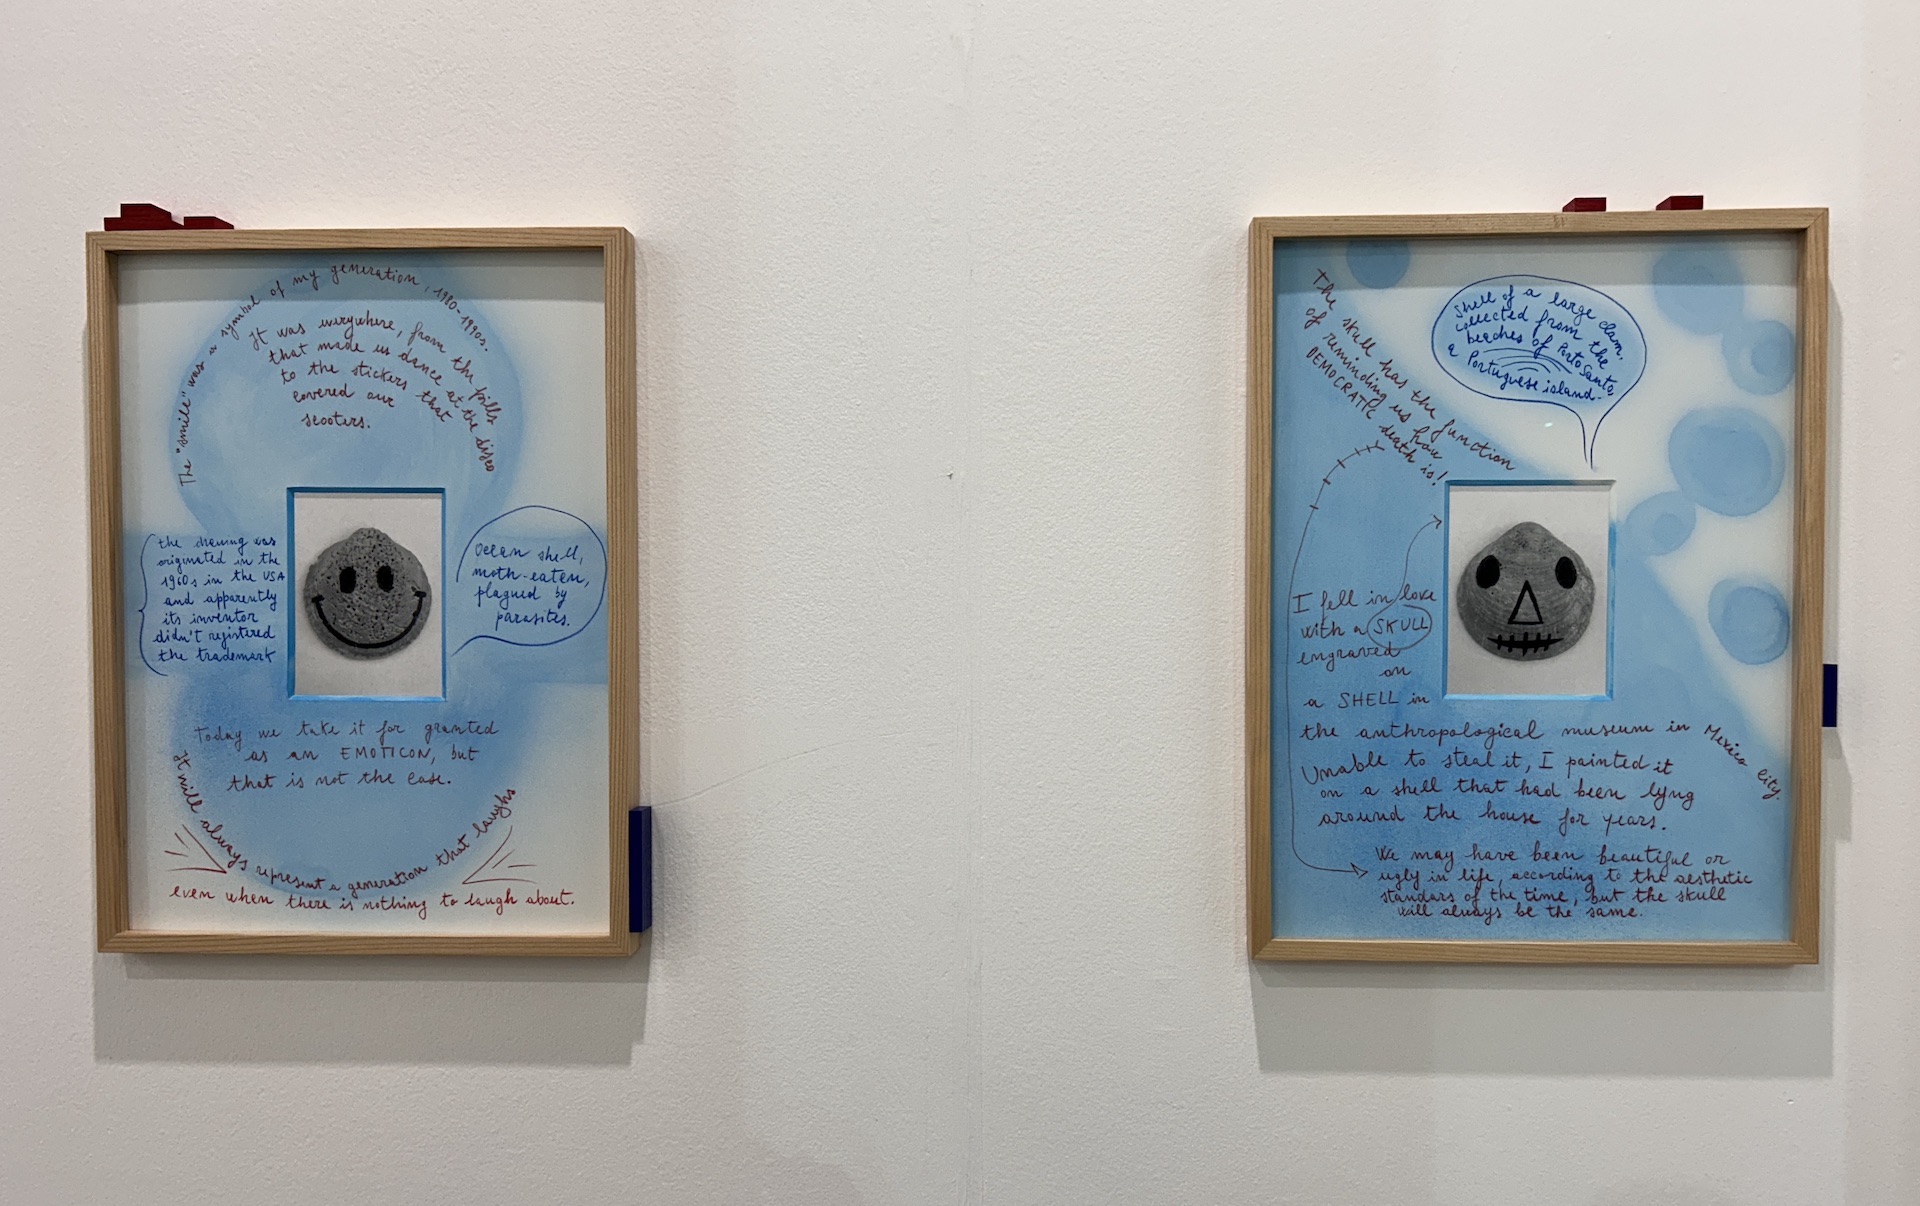 The "smile" was a symbol of my generation, 1980-1990s.
It was everywhere, from the pills
that made us dance at the disco
to the stickers that
covered our
scooters.
the drawing was
originated in the
1960s in the USA
and apparently
its inventor
didn't registered
the trademark
Ocean shell,
moth-eaten,
plagued by
parasites.
Today we take it for granted
as an EMOTICON, but
that is not the case.
It will always represent a generation that laughs
even when there is nothing to laugh about.
The skull has the function
of reminding us how
DEMOCRATIC death is!
Shell of a large clam.
collected from the
beaches of Porto Santo
a Portuguese island.
I fell in love
with a SKULL
engraved
on
a SHELL in
the anthropological museum in Mexico City.
Unable to steal it, I painted it
on a shell that had been lyng
around the house for years.
We may have been beautiful or
ugly in life, according to the aesthetic
standars of the time, but the skull
will always be the same.